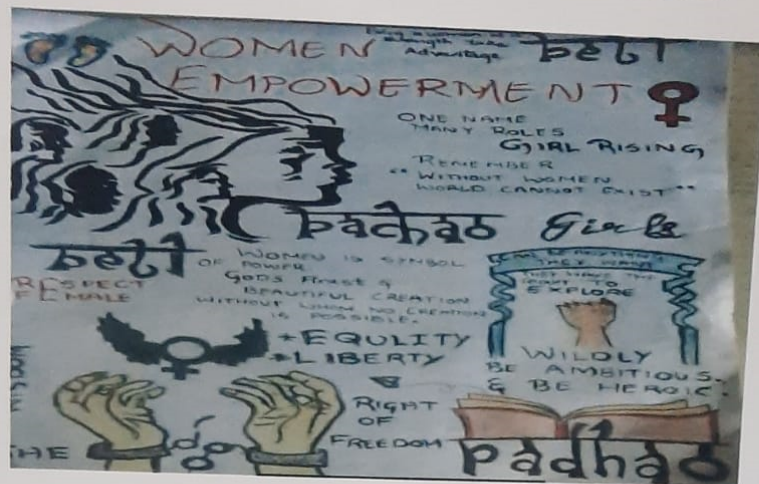 Being a woman is a
strength take
Advantage
beti
WOMEN
EMPOWERMENT
ONE NAME
MANY ROLES
GIRL RISING
REMEMBER
"WITHOUT WOMEN
WORLD CANNOT EXIST"
bachao
Girls
beti
RESPECT
FEMALE
WOMEN IS SYMBOL
OF POWER
GODS FINEST &
BEAUTIFUL CREATION
WITHOUT WHOM NO CREATION
IS POSSIBLE.
THEY WANT
THEY HAVE THE
RIGHT TO
EXPLORE
WILDLY
BE AMBITIOUS.
& BE HEROIC.
EQULITY
LIBERTY
&
RIGHT
OF
FREEDOM
THE
padhao